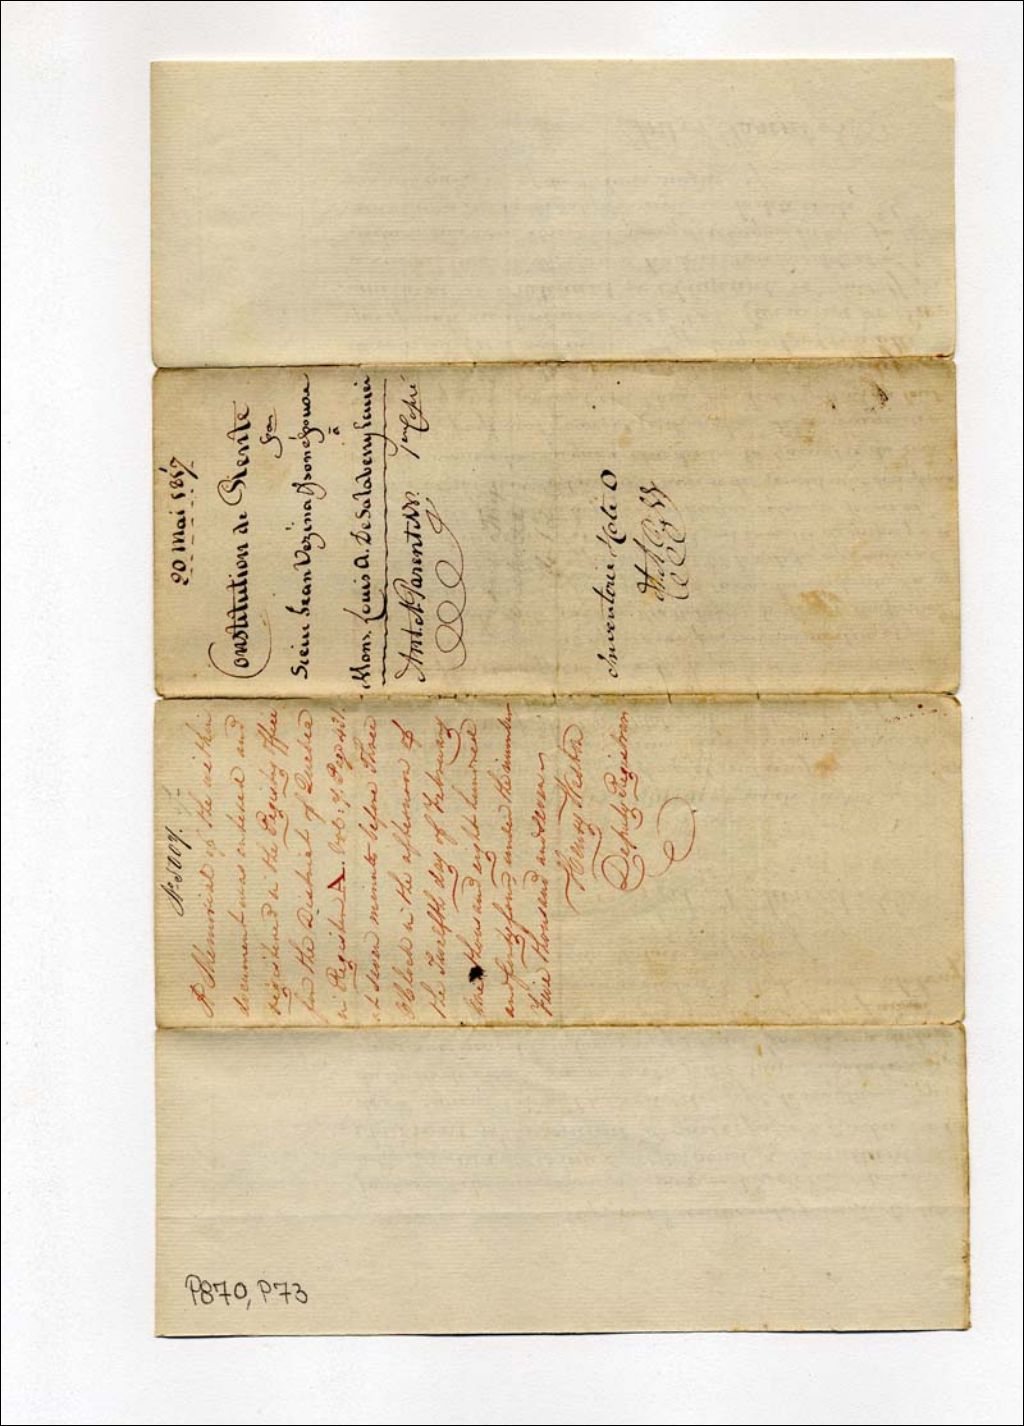 20 mai 1817
Constitution de Rente
par
Sieur Jean Vezina & son épouse
à
Mons. Louis A. De Salaberry Ecuier
Ant. A. Parent N.P.
1ere Copié
Inventoriée Cote O
No. 5007.
A Memorial of the within
document was entered and
registered in the Registry Office
for the District of Quebec
in Register A. Vol: 7. Page 431.
at seven minutes before Three
O'Clock in the afternoon of
the Twelfth day of February
One thousand eight hundred
and forty four under the number
Five thousand and seven
Henry
Deputy Registrar
P870, P73